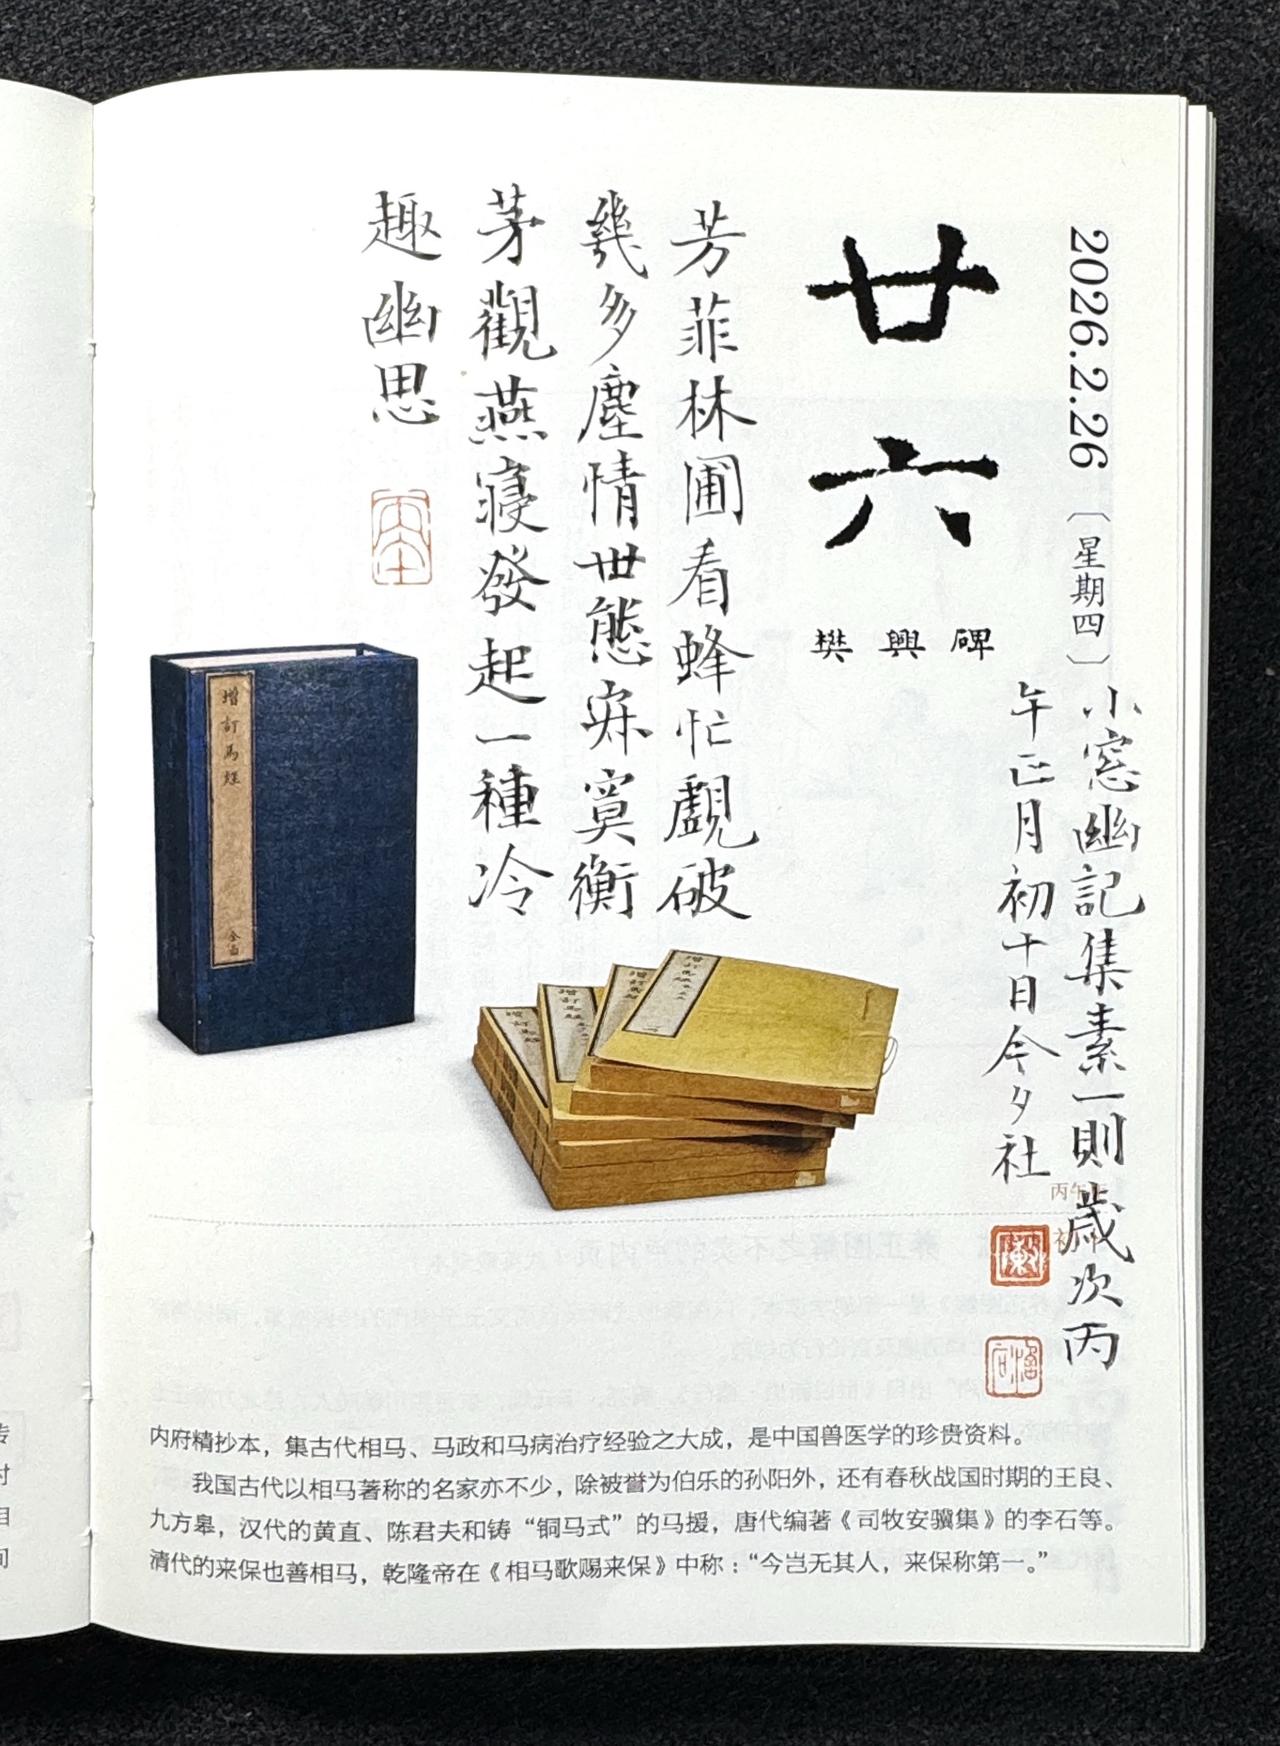 2026.2.26〔星期四〕
廿六
樊興碑
芳菲林圃看蜂忙覷破
幾多塵情世態寂寞衡
茅觀燕寢發起一種冷
趣幽思
小窓幽記集素一則歲次丙
午正月初十日今夕社
增訂馬經
全函
增訂馬經
增訂馬經
增訂馬經
增訂馬經
内府精抄本，集古代相马、马政和马病治疗经验之大成，是中国兽医学的珍贵资料。
我国古代以相马著称的名家亦不少，除被誉为伯乐的孙阳外，还有春秋战国时期的王良、
九方皋，汉代的黄直、陈君夫和铸“铜马式”的马援，唐代编著《司牧安骥集》的李石等。
清代的来保也善相马，乾隆帝在《相马歌赐来保》中称：“今岂无其人，来保称第一。”